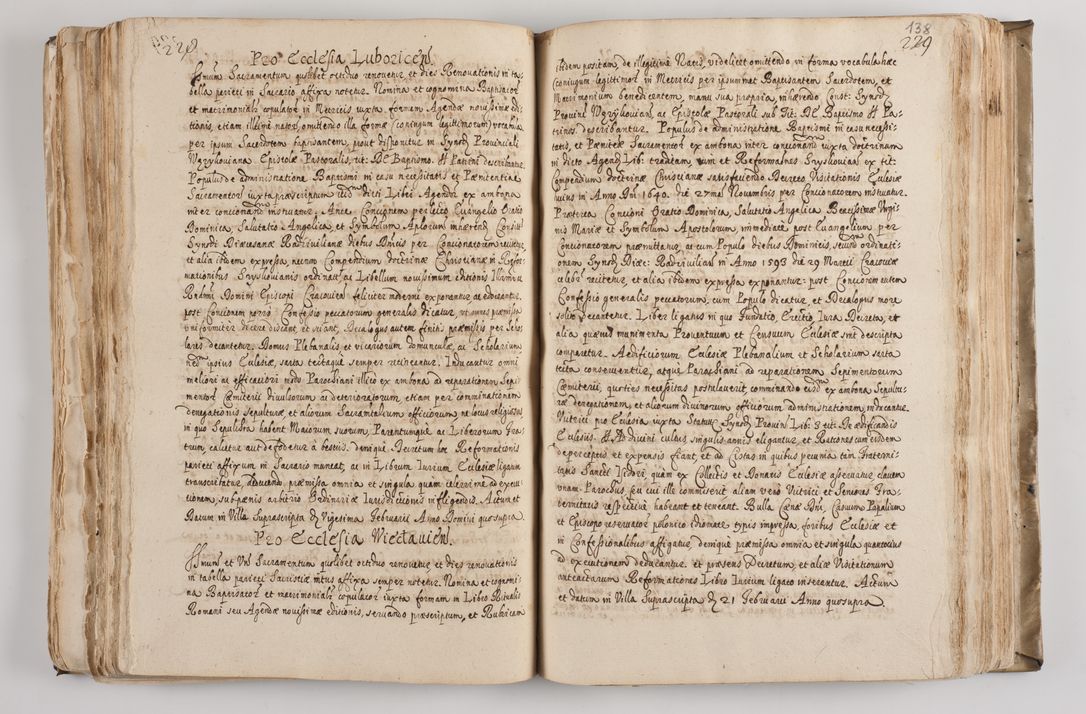 229
Pro Ecclesia Luboricen.
Smum Sacramentum quolibet octiduo renovetur, et dies Renovationis in ta-
bella parieti in Sacrario affixa notetur. Nomina et cognomina Baptisator
et matrimonialr copulator in Metricis iuxta formam Agendæ novissimæ edi-
tionis, etiam illegittimi nator omittendo illa formæ (coniugum legittimorum) vocabula
per ipsum Sacerdotem baptisantem, prout disponitur in Synodo Provinciali
Uszykoviana Epistolæ Pastoralis, tit: De Baptismo. Et Patrini describantur.
Populus de administratione Baptismi in casu necessitatis et Pænitentiæ
Sacramentor iuxta præscriptum dicti Libri Agendor ex ambona
inter concionandum instruatur. Ante Concionem perlecto Evangelio Oratio
Dominica, Salutatio Angelica, et Symbolum Aplorum inhærendo Constit:
Synodi Diæcesanæ Radziviliana diebus Dnicis per Concionatorem recitetur,
et alia ibidem expressa, necnon Compendium doctrinæ Christianæ in Refor-
mationibus Szyskovianis ordinatum, ac Libellum novissimum editionis Illmi et
Rndmi Domini Episcopi Cracovien feliciter moderni exponantur ac edoceantur,
post Concionem porro Confessio peccatorum generalis dicatur, ut omnes præmissa
uniformiter dicere discant, et sciant. Decalogus autem finitis præmissis per Scho-
lares decantetur. Domus Plebanalis et vicariorum domunculæ, ac Scholarium
nec ipsius Ecclesiæ, sarta tectaque semper retineantur. Inducantur omni
meliori ac efficaciori modo Parochiani illico ex ambona ad reparationem Sepi-
mentor Cœmiterii divulsorum ac deterioratorum, etiam per comminationem
denegationis sepulturæ, et aliorum Sacramentalium officiorum, ne locus religiosus
in quo Sepulchra habent Maiorum suorum, Parentumque ac Liberorum Fra-
trum, calcetur aut defodetur à bestiis. Denique Decretum hoc Reformationis
parieti affixum in Sacrario maneat, ac in Librum Iurium Ecclesiæ ligatum
transcribatur, adducendo præmissa omnia et singula quam celerrime ad execu-
tionem, sub pœnis arbitrio Ordinariæ Iurisdictionis infligendis. Actum et
Datum in Villa Suprascripta Die Vigesima Februarii Anno Domini quo supra.
Pro Ecclesia Wiectavien.
Smum et Vnle Sacramentum quolibet octiduo renovetur et dies renovationis
in tabella parieti Sacristiæ intus affixa semper notetur. Nomina et cognomi-
na Baptisator et matrimonialr copulator iuxta formam in Libro Ritualis
Romani seu Agendæ novissimæ editionis, servando præscriptum, et Rubricam
138
229
ibidem positam, de illegitime Natis, videlicet omittendo in forma vocabula hæc
(coniugum legittimor) in Metricis per ipsummet Baptisantem Sacerdotem, et
Matrimonium benedicentem, manu sua propria, inhærendo Const: Synod
Provinl Uszykovian, ac Epistolæ Pastorali sub Tit: De Baptismo Et Pa-
trinos describantur. Populus de administratione Baptismi in casu necessi-
tatis, et Pænitentiæ Sacramentor ex ambona inter concionandum iuxta doctrinam
in dicto Agendor Lib: traditam, tum et Reformatnas Szyskovian ex tit:
Compendium doctrinæ Christianæ satisfaciendo Decreto Visitationis Ecclesiæ
huius in Anno Dni 1640. die 27ma Novembris per Concionatorem instruatur.
Prætereà Concioni Oratio Dominica, Salutatio Angelica Beatissimæ Virgi-
nis Mariæ et Symbolum Apostolorum, immediate post Evangelium per
Concionatorem præmittatur, ac cum Populo diebus Dominicis, secundum ordinati-
onem Synodi Diæc: Radzivilian in Anno 1593 die 29 Martii Cracoviæ
celebr recitetur, et alia ibidem expressa exponantur: post Concionem autem
Confessio generalis peccatorum, cum Populo dicatur, et Decalogus more
solito decantetur. Liber ligatus in quo Fundatio, Erectio Iura Decreta, et
alia quævis munimenta Proventuum et Censuum Ecclesiæ sint descripta
comparetur. Aedificiorum Ecclesiæ Plebanalium et Scholarium sarta
tecta conserventur, atque Parochiani ad reparationem Sepimentorum
Cœmiterii, quoties necessitas postulaverit comminando eisdem ex ambona Sepultu-
ræ denegationem, et aliorum divinorum officiorum administrationem, inducantur.
Vitrici pro Ecclesia iuxta Statut Synod Provinl Lib: 3 tit: De ædificandis
Ecclesiis. Et Ad divini cultus singulis annis eligantur, et Rationes cum eisdem
de perceptis et expensis fiant, et ad Cistas in quibus pecunia tam Fraterni-
tatis Sancti Isidori, quam ex Collectis et Donatis Ecclesiæ asservatur, clavem
unam Parochus, seu cui ille commiserit aliam vero Vitrici et Seniores Fra-
ternitatis respective habeant et teneant. Bulla Cœnæ Dni, Casuum Papalium
et Episcopo reservator polonico idiomate typis impressa, foribus Ecclesiæ et
in Confessionalibus affigatur, denique præmissa omnia et singula quantocius
ad executionem deducantur, et præsens Decretum, et aliæ Visitationum
antecedarum Reformationes Libro Iurium ligato inserantur. Actum
et datum in Villa Suprascripta Die 21 Februarii Anno quo supra.